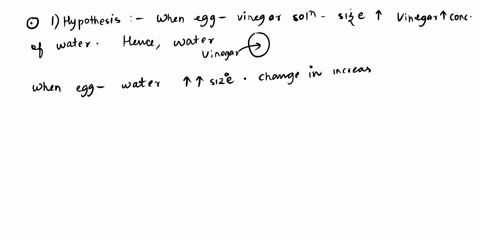 ⊙ 1) Hypothesis :- When egg- vinegar solⁿ - size ↑ Vinegar ↑ conc.
of water. Hence, water
Vinegar
when egg- water ↑↑ size. change in increas